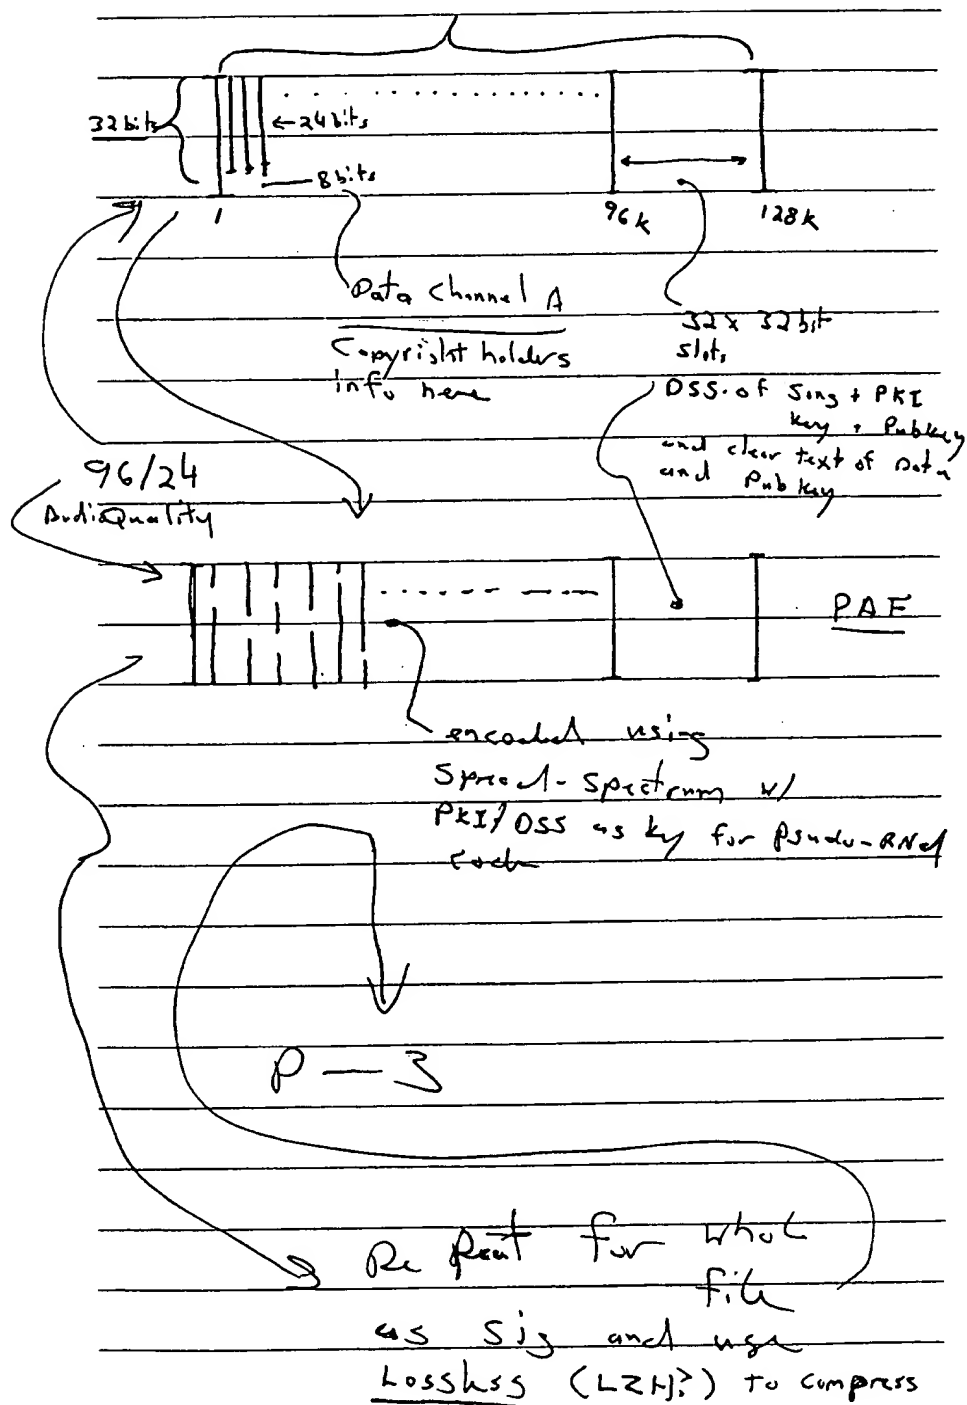 32 bits
←24 bits
8 bits
1
96k
128k
Data Channel A
Copyright holders
info here
32 x 32 bit
slots
DSS of Song + PKI
key + Pubkey
and clear text of Data
and Pubkey
96/24
AudioQuality
PAF
encoded using
Spread-Spectrum w/
PKI/DSS as ky for Psudo-RNd
code
P — 3
Repeat for whol
file
as sig and use
Lossless (LZH?) to compress